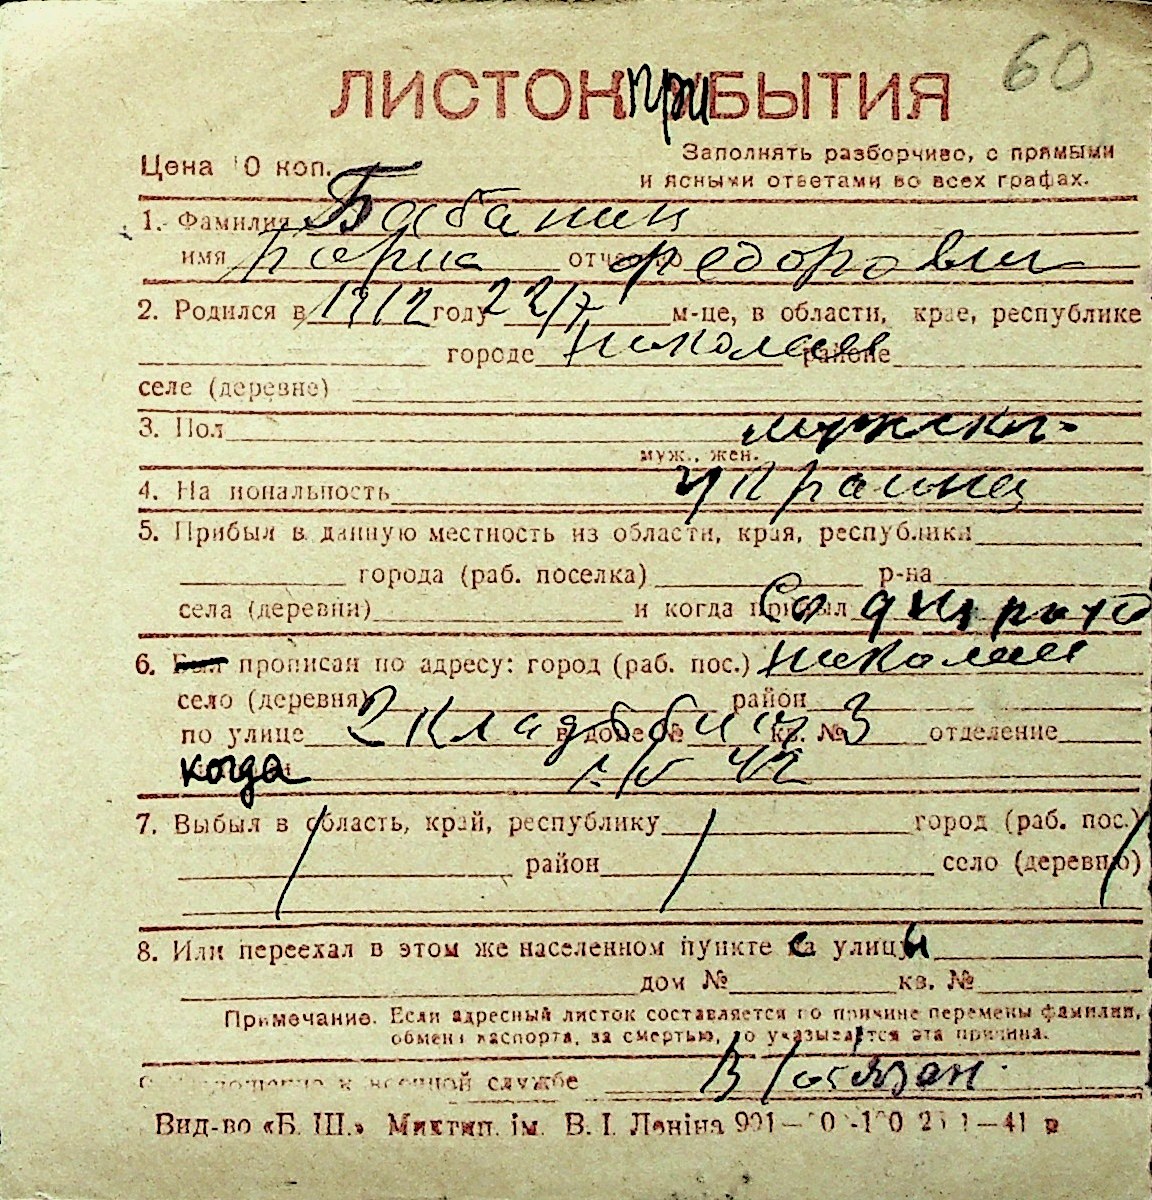 60
ЛИСТОК ПриБЫТИЯ
Цена 10 коп.
Заполнять разборчиво, с прямыми
и ясными ответами во всех графах.
1. Фамилия Бабанин
имя отчество Федорович
2. Родился в 1912 году 22/7 м-це, в области, крае, республике
городе Николаев районе
селе (деревне)
3. Пол мужской
муж., жен.
4. Национальность украинец
5. Прибыл в данную местность из области, края, республики
города (раб. поселка) р-на
села (деревни) и когда прибыл
6. Был прописан по адресу: город (раб. пос.) Николаев
село (деревня) район
по улице 2 Кладбищ в доме № кв. № 3 отделение
когда 42
7. Выбыл в область, край, республику город (раб. пос.)
район село (деревню)
8. Или переехал в этом же населенном пункте с улицы
дом № кв. №
Примечание. Если адресный листок составляется по причине перемены фамилии,
обмена паспорта, за смертью, то указывается эта причина.
Отношение к военной службе В/обязан.
Вид-во «Б. Ш.» Миктип. ім. В. І. Леніна